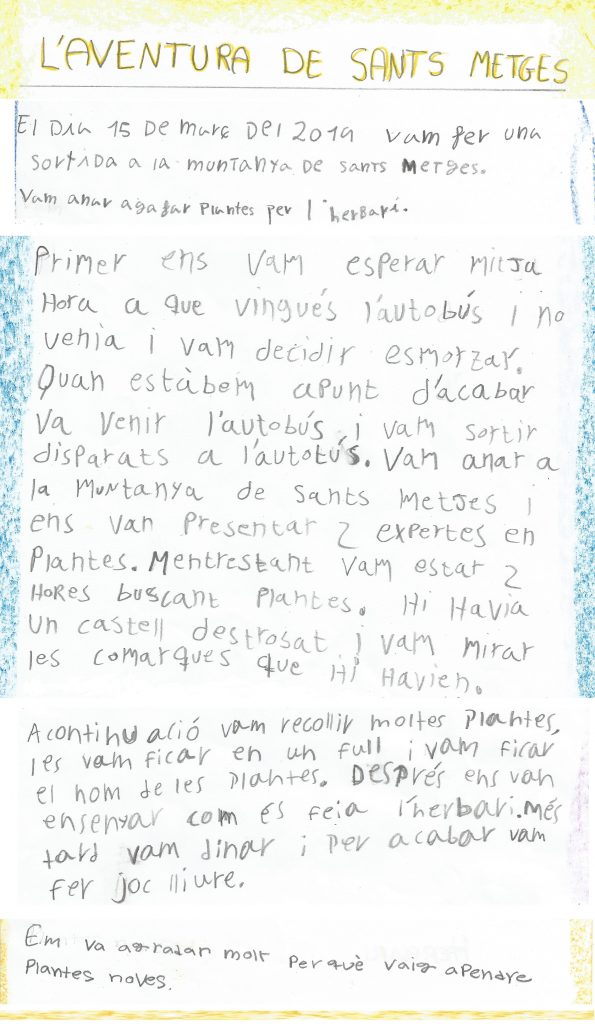 L'AVENTURA DE SANTS METGES
El Dia 15 De març Del 2019 vam fer una
sortida a la muntanya de sants Metges.
Vam anar agafar plantes per l'herbari.
Primer ens vam esperar mitja
Hora a que vingués l'autobús i no
venia i vam decidir esmorzar.
Quan estàbem apunt d'acabar
va venir l'autobús i vam sortir
disparats a l'autobús. Vam anar a
la Muntanya de Sants Metjes i
ens van presentar 2 expertes en
plantes. Mentrestant vam estar 2
Hores buscant plantes. Hi Havia
un castell destrosat i vam mirar
les comarques que Hi Havien.
Acontinuació vam recollir moltes plantes,
les vam ficar en un full i vam ficar
el nom de les plantes. Després ens van
ensenyar com és feia l'herbari. Més
tard vam dinar i per acabar vam
fer joc lliure.
Em va agradar molt perquè vaig apendre
plantes noves.